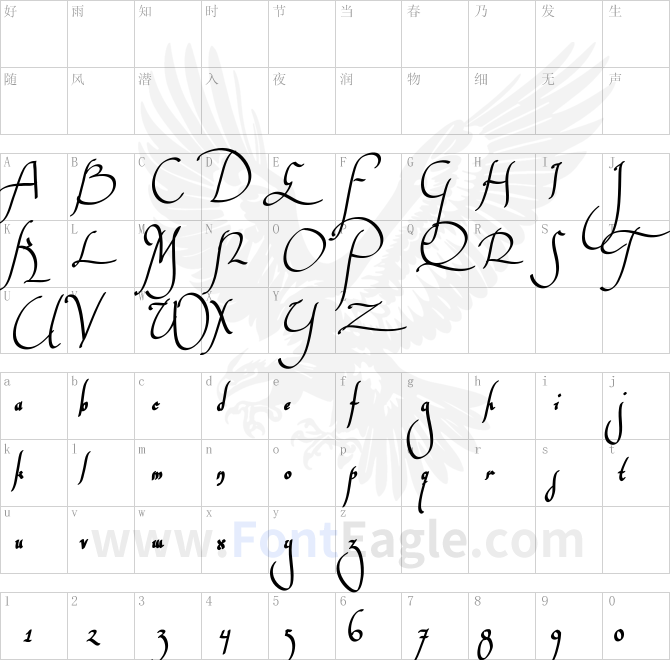 好 雨 知 时 节 当 春 乃 发 生
随 风 潜 入 夜 润 物 细 无 声
A B C D E F G H I J
A B C D E F G H I J
K L M N O P Q R S T
K L M N O P Q R S T
U V W X Y Z
U V W X Y Z
a b c d e f g h i j
a b c d e f g h i j
k l m n o p q r s t
k l m n o p q r s t
u v w x y z
u v w x y z
www.FontEagle.com
1 2 3 4 5 6 7 8 9 0
1 2 3 4 5 6 7 8 9 0